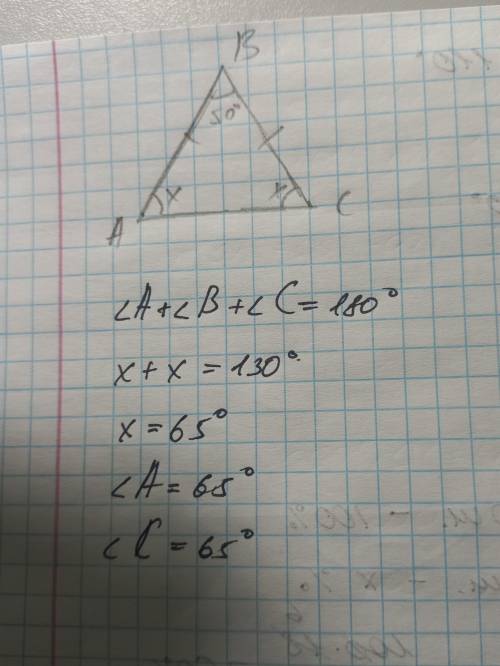 B
50°
x x
A C
∠A+∠B+∠C=180°
x+x=130°
x=65°
∠A=65°
∠C=65°